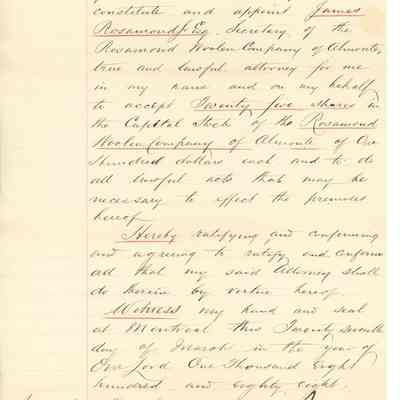 constitute and appoint James
Rosamond Jr Esq. Secretary of the
Rosamond Woolen Company of Almonte,
true and lawful attorney for me
in my name and on my behalf
to accept Twenty five shares in
the Capital Stock of the Rosamond
Woolen Company of Almonte of One
Hundred dollars each and to do
all lawful acts that may be
necessary to effect the premises
hereof.
Hereby ratifying and confirming
and agreeing to ratify and confirm
all that my said Attorney shall
do herein by virtue hereof.
Witness my hand and seal
at Montreal this Twenty seventh
day of March in the year of
Our Lord One Thousand Eight
hundred and eighty eight.